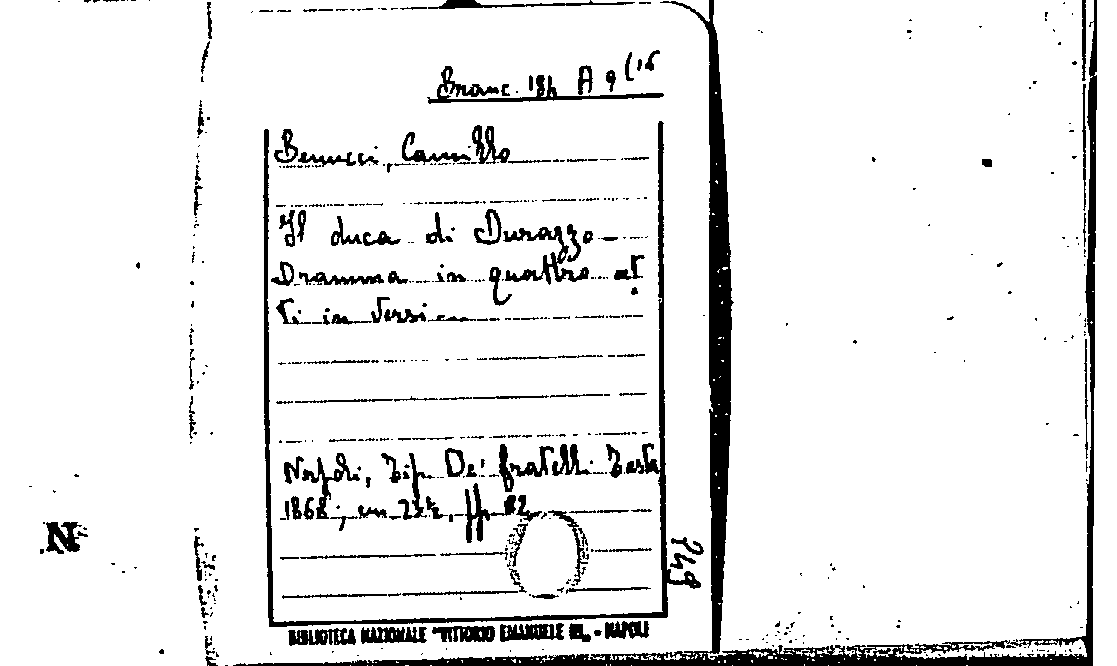 Branc. 184 A 9 (16
Benucci, Camillo
Il duca di Durazzo -
Dramma in quattro at
ti in versi. -
Napoli, Tip. De' fratelli Testa
1868, cm 23½, pp. 82
249
BIBLIOTECA NAZIONALE "VITTORIO EMANUELE III„ - NAPOLI
N